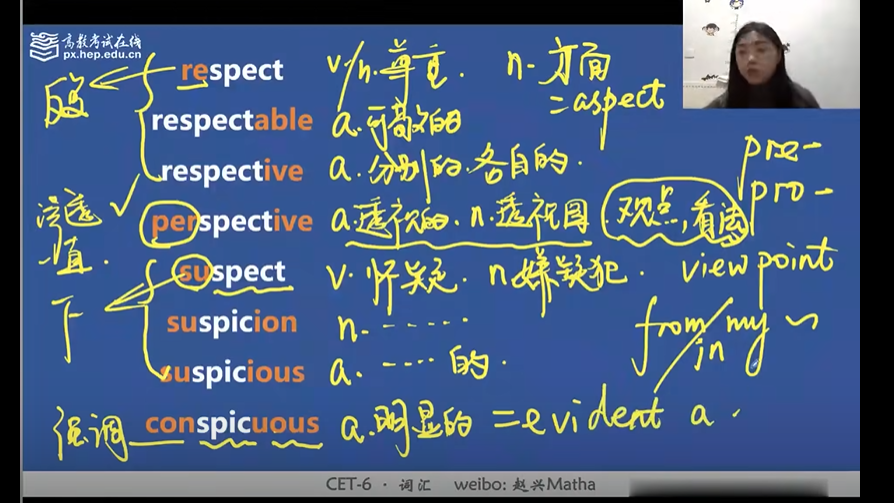 高教考试在线
px.hep.edu.cn
respect v/n. 尊重. n. 方面
= aspect
反复
respectable a. 可敬的
respective a. 分别的. 各自的.
pre-
pro-
渗透
perspective a. 透视的. n. 透视图. 观点, 看法
一直.
viewpoint
suspect v. 怀疑. n. 嫌疑犯.
下
suspicion n. ......
from/in my ~
suspicious a. ....的.
强调 conspicuous a. 明显的 = evident a.
CET-6 · 词汇 weibo: 赵兴Matha